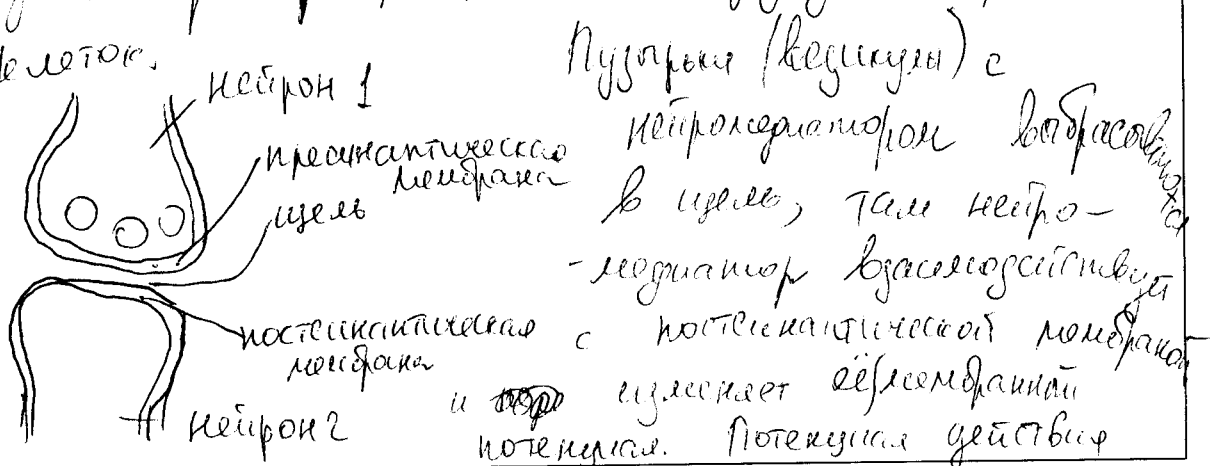 клеток.
нейрон 1
пресинаптическая
мембрана
щель
постсинаптическая
мембрана
нейрон 2
Пузырьки (везикулы) с
нейромедиатором выбрасываются
в щель, там нейро-
-медиатор взаимодействует
с постсинаптической мембраной
и изменяет её мембранный
потенциал. Потенциал действия